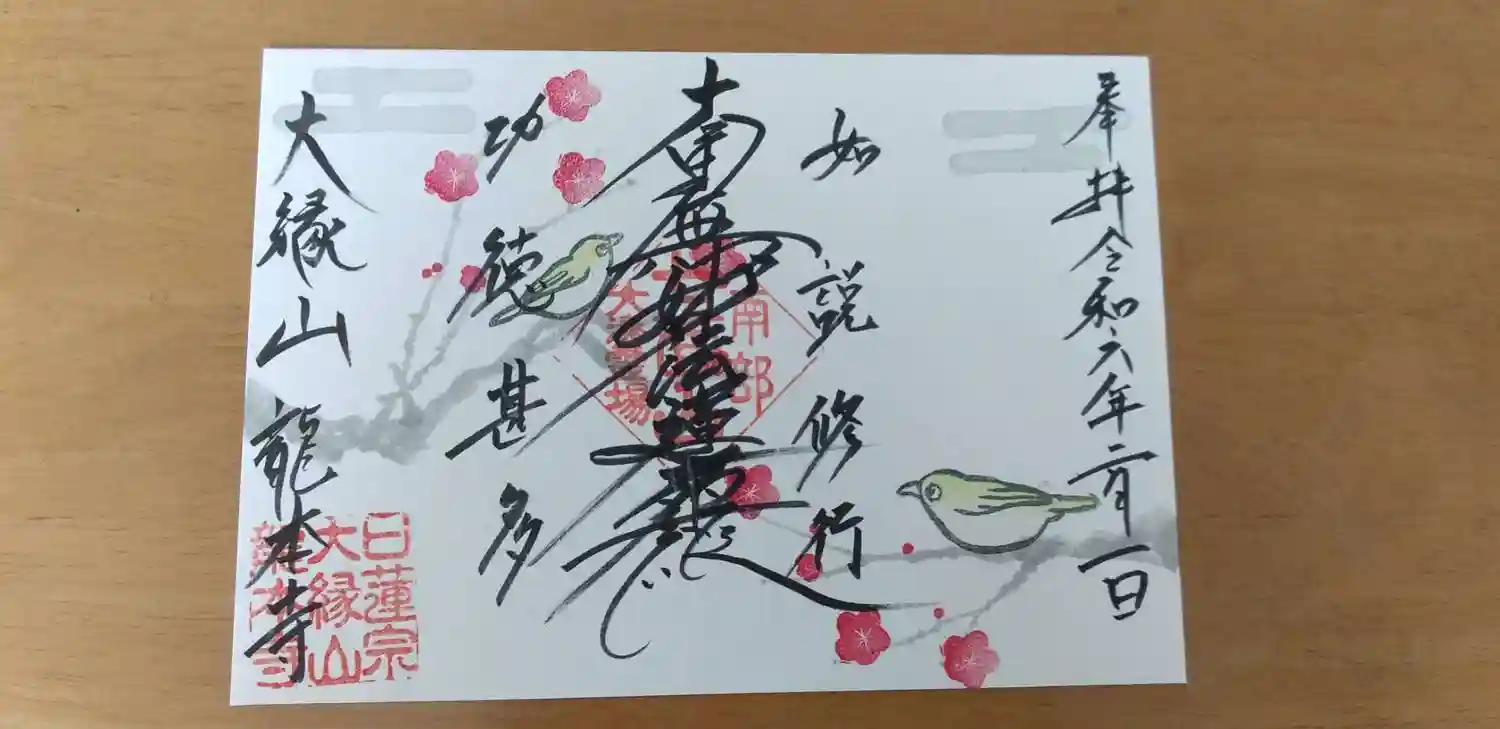 奉拝 令和六年二月一日
如説修行
南無妙法蓮華経
功徳甚多
大縁山 龍本寺
南部
霊場
日蓮宗
大縁山
龍本寺